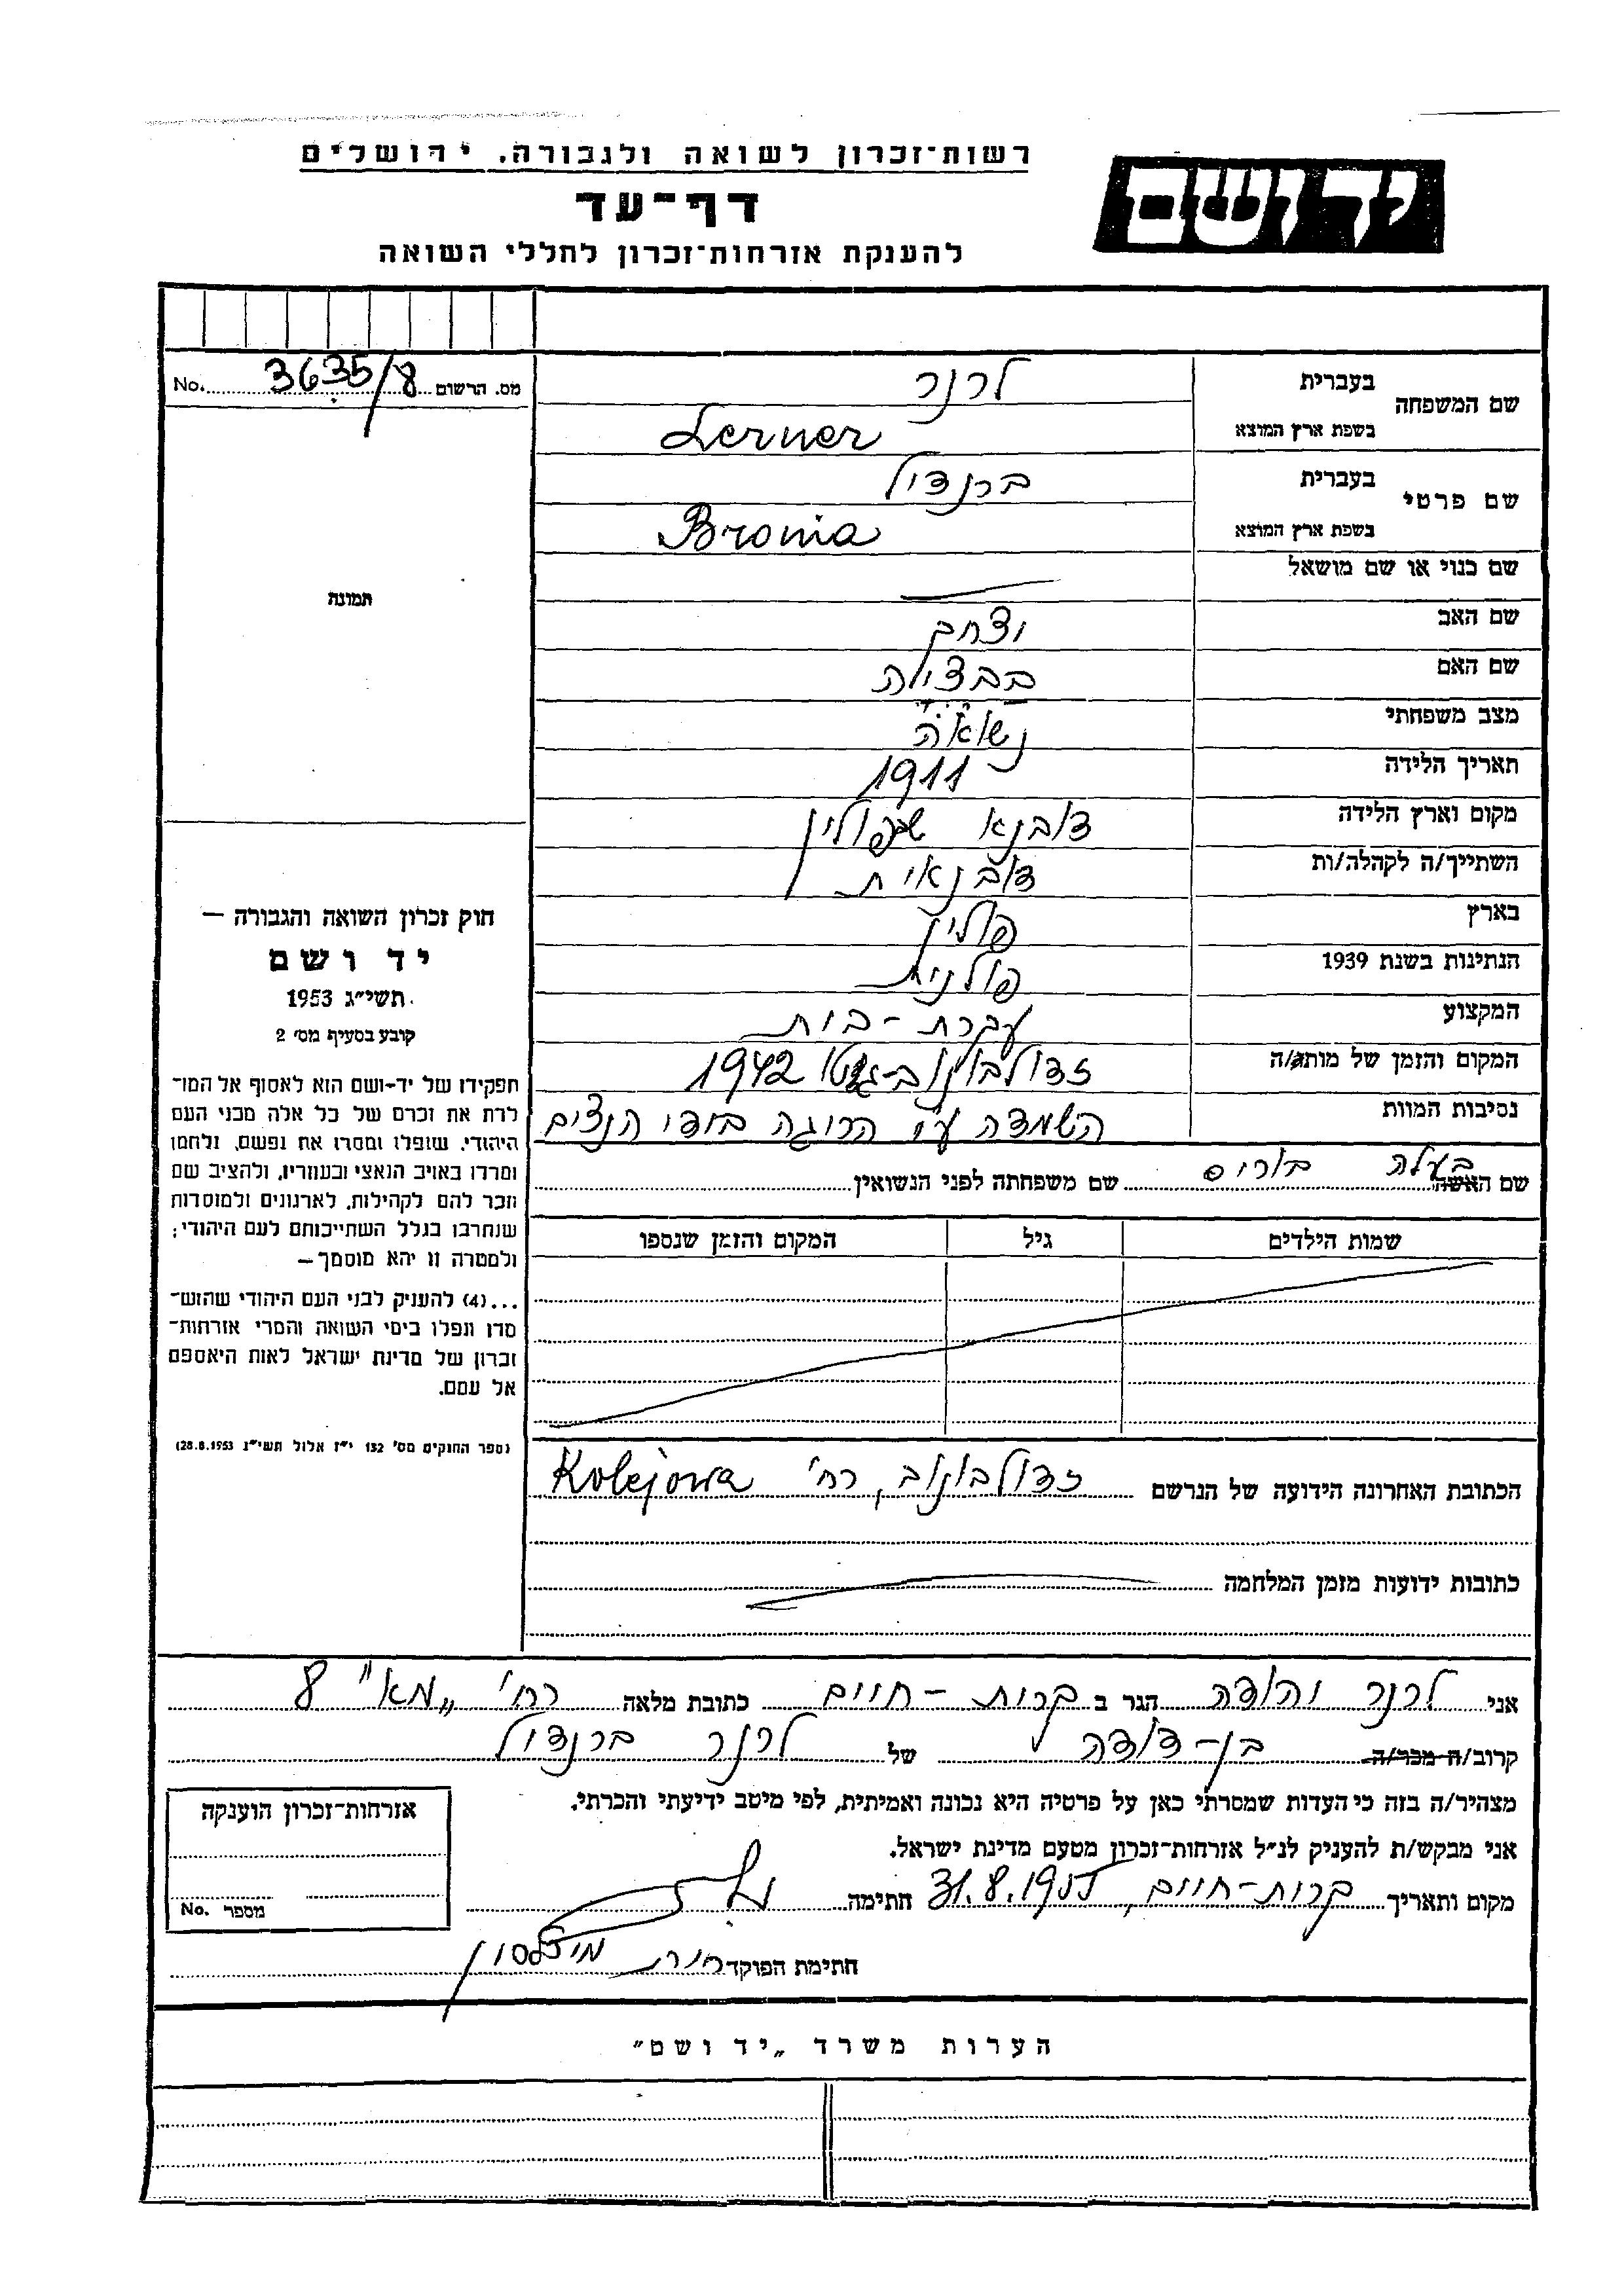 רשות־זכרון לשואה ולגבורה, ירושלים
יד ושם
דף־עד
להענקת אזרחות־זכרון לחללי השואה
מס. הרשום 3635/8 No.
שם המשפחה
בעברית לרנר
בשפת ארץ המוצא Lerner
שם פרטי
בעברית ברנדיל
בשפת ארץ המוצא Bronia
שם כנוי או שם מושאל
שם האב יצחק
שם האם
מצב משפחתי נשואה
תאריך הלידה 1911
מקום וארץ הלידה דובנא שבפולין
השתייך/ה לקהלה/ות דובנאית
בארץ פולין
הנתינות בשנת 1939 פולנית
המקצוע עקרת-בית
המקום והזמן של מותו/ה זדולבונוב-גטו 1942
נסיבות המוות השמדה ע"י הרוגה בידי הנצים
שם האשה בעלה בוריס שם משפחתה לפני הנשואין
שמות הילדים גיל המקום והזמן שנספו
הכתובת האחרונה הידועה של הנרשם זדולבונוב, רח' Kolejowa
כתובות ידועות מזמן המלחמה
תמונה
חוק זכרון השואה והגבורה –
יד ושם
תשי״ג 1953
קובע בסעיף מס׳ 2
תפקידו של יד-ושם הוא לאסוף אל המו־
לדת את זכרם של כל אלה מבני העם
היהודי, שנפלו ומסרו את נפשם, נלחמו
ומרדו באויב הנאצי ובעוזריו, ולהציב שם
וזכר להם לקהילות, לארגונים ולמוסדות
שנחרבו בגלל השתייכותם לעם היהודי;
ולמטרה זו יהא מוסמך –
...(4) להעניק לבני העם היהודי שהוש־
מדו ונפלו בימי השואה והמרי אזרחות־
זכרון של מדינת ישראל לאות היאספם
אל עמם.
(ספר החוקים מס׳ 132 י״ז אלול תשי״ג 28.8.1953)
אני לרנר יהודה הגר ב קרית-חיים כתובת מלאה רח' "מא" 8
קרוב/ה מכר/ה בן-דודה של לרנר ברנדיל
מצהיר/ה בזה כי העדות שמסרתי כאן על פרטיה היא נכונה ואמיתית, לפי מיטב ידיעתי והכרתי.
אני מבקש/ת להעניק לנ״ל אזרחות־זכרון מטעם מדינת ישראל.
מקום ותאריך קרית-חיים, 31.8.1955 חתימה
חתימת הפוקד
אזרחות־זכרון הוענקה
מספר No.
הערות משרד „יד ושם״